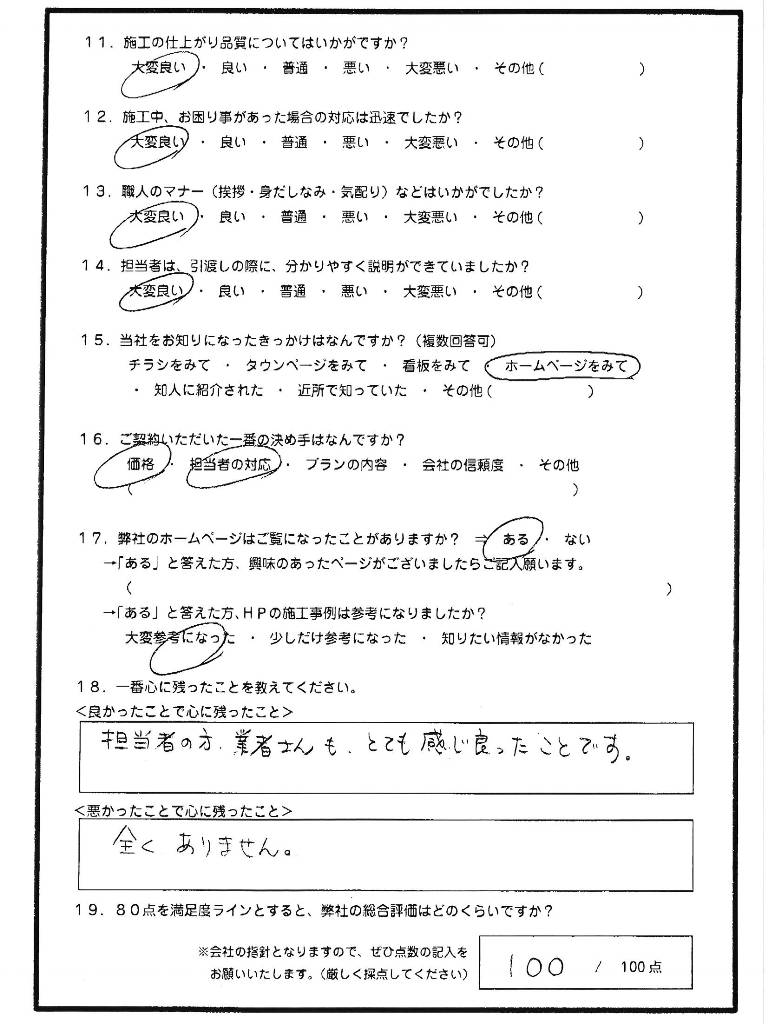 １１．施工の仕上がり品質についてはいかがですか？
大変良い ・ 良い ・ 普通 ・ 悪い ・ 大変悪い ・ その他（　　　　　　）
１２．施工中、お困り事があった場合の対応は迅速でしたか？
大変良い ・ 良い ・ 普通 ・ 悪い ・ 大変悪い ・ その他（　　　　　　）
１３．職人のマナー（挨拶・身だしなみ・気配り）などはいかがでしたか？
大変良い ・ 良い ・ 普通 ・ 悪い ・ 大変悪い ・ その他（　　　　　　）
１４．担当者は、引渡しの際に、分かりやすく説明ができていましたか？
大変良い ・ 良い ・ 普通 ・ 悪い ・ 大変悪い ・ その他（　　　　　　）
１５．当社をお知りになったきっかけはなんですか？（複数回答可）
チラシをみて ・ タウンページをみて ・ 看板をみて ・ ホームページをみて
・ 知人に紹介された ・ 近所で知っていた ・ その他（　　　　　　）
１６．ご契約いただいた一番の決め手はなんですか？
価格 ・ 担当者の対応 ・ プランの内容 ・ 会社の信頼度 ・ その他
（　　　　　　）
１７．弊社のホームページはご覧になったことがありますか？ ⇒ ある ・ ない
→「ある」と答えた方、興味のあったページがございましたらご記入願います。
（　　　　　　）
→「ある」と答えた方、ＨＰの施工事例は参考になりましたか？
大変参考になった ・ 少しだけ参考になった ・ 知りたい情報がなかった
１８．一番心に残ったことを教えてください。
＜良かったことで心に残ったこと＞
担当者の方、業者さんも、とても感じ良ったことです。
＜悪かったことで心に残ったこと＞
全くありません。
１９．８０点を満足度ラインとすると、弊社の総合評価はどのくらいですか？
※会社の指針となりますので、ぜひ点数の記入を
お願いいたします。（厳しく採点してください）
100 / 100点